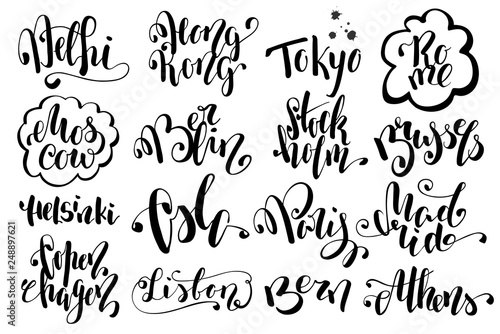 Delhi
Hong
Kong
Tokyo
Ro
me
Mos
cow
Ber
lin
Stock
holm
Brussels
Helsinki
Oslo
Paris
Mad
rid
Copen
hagen
Lisbon
Bern
Athens
Adobe Stock | #248897621